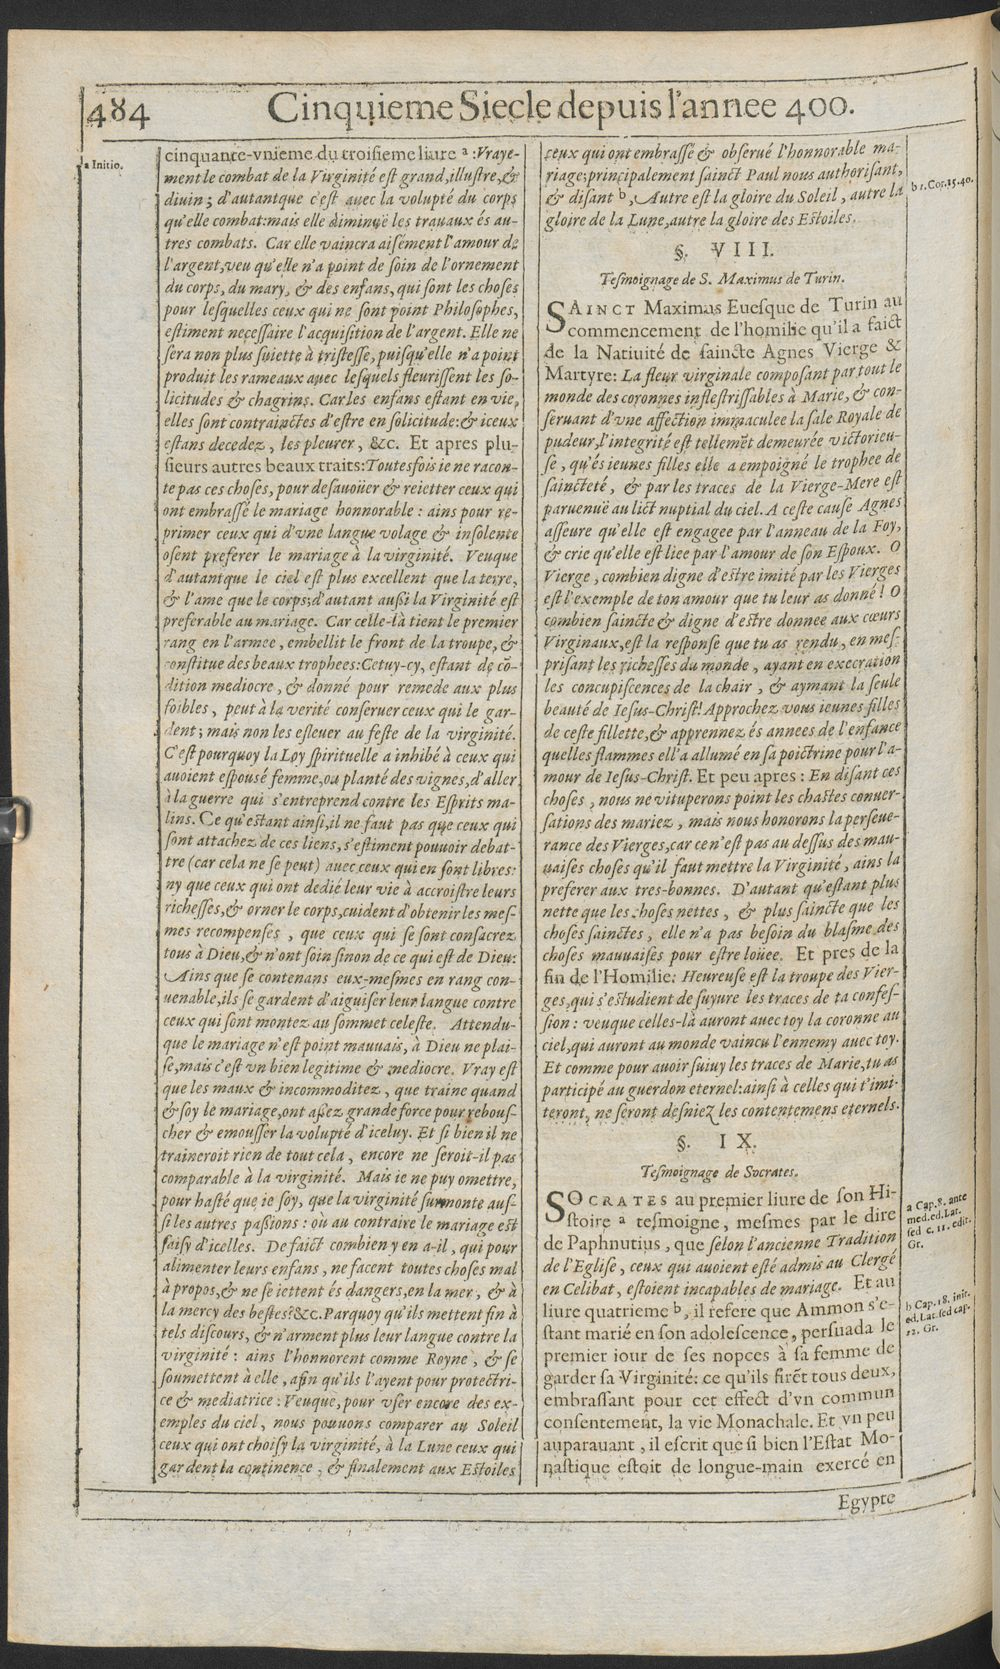 484
Cinquieme Siecle depuis l'annee 400.
a Initio.
cinquante-vnieme du troisieme liure a : Vraye-
ment le combat de la Virginité est grand, illustre, &
diuin ; d'autantque c'est auec la volupté du corps
qu'elle combat: mais elle diminuë les trauaux és au-
tres combats. Car elle vaincra aisément l'amour de
l'argent, veu qu'elle n'a point de soin de l'ornement
du corps, du mary, & des enfans, qui sont les choses
pour lesquelles ceux qui ne sont point Philosophes,
estiment necessaire l'acquisition de l'argent. Elle ne
sera non plus suiette à tristesse, puisqu'elle n'a point
produit les rameaux auec lesquels fleurissent les so-
licitudes & chagrins. Car les enfans estant en vie,
elles sont contrainctes d'estre en solicitude: & iceux
estans decedez, les pleurer, &c. Et apres plu-
sieurs autres beaux traits: Toutesfois ie ne racon-
te pas ces choses, pour desauoüer & reietter ceux qui
ont embrassé le mariage honnorable : ains pour re-
primer ceux qui d'vne langue volage & insolente
osent preferer le mariage à la virginité. Veuque
d'autantque le ciel est plus excellent que la terre,
& l'ame que le corps; d'autant aussi la Virginité est
preferable au mariage. Car celle-là tient le premier
rang en l'armee, embellit le front de la troupe, &
constitue des beaux trophees: Cetuy-cy, estant de cō-
dition mediocre, & donné pour remede aux plus
foibles, peut à la verité conseruer ceux qui le gar-
dent ; mais non les esleuer au feste de la virginité.
C'est pourquoy la Loy spirituelle a inhibé à ceux qui
auoient espousé femme, ou planté des vignes, d'aller
à la guerre qui s'entreprend contre les Esprits ma-
lins. Ce qu'estant ainsi, il ne faut pas que ceux qui
sont attachez de ces liens, s'estiment pouuoir debat-
tre (car cela ne se peut) auec ceux qui en sont libres:
ny que ceux qui ont dedié leur vie à accroistre leurs
richesses, & orner le corps, cuident d'obtenir les mes-
mes recompenses, que ceux qui se sont consacrez
tous à Dieu, & n'ont soin sinon de ce qui est de Dieu:
Ains que se contenans eux-mesmes en rang con-
uenable, ils se gardent d'aiguiser leur langue contre
ceux qui sont montez au sommet celeste. Attendu-
que le mariage n'est point mauuais, à Dieu ne plai-
se, mais c'est vn bien legitime & mediocre. Vray est
que les maux & incommoditez, que traine quand
& soy le mariage, ont assez grande force pour rebous-
cher & emousser la volupté d'iceluy. Et si bien il ne
traineroit rien de tout cela, encore ne seroit-il pas
comparable à la virginité. Mais ie ne puy omettre,
pour hasté que ie soy, que la virginité surmonte aus-
si les autres passions : ou au contraire le mariage est
saisy d'icelles. De faict combien y en a-il, qui pour
alimenter leurs enfans, ne facent toutes choses mal
à propos, & ne se iettent és dangers, en la mer, & à
la mercy des bestes? &c. Parquoy qu'ils mettent fin à
tels discours, & n'arment plus leur langue contre la
virginité : ains l'honnorent comme Royne, & se
soumettent à elle, afin qu'ils l'ayent pour protectri-
ce & mediatrice : Veuque, pour vser encore des ex-
emples du ciel, nous pouuons comparer au Soleil
ceux qui ont choisy la virginité, à la Lune ceux qui
gardent la continence, & finalement aux Estoiles
ceux qui ont embrassé & obserué l'honnorable ma-
riage; principalement sainct Paul nous authorisant,
& disant b, Autre est la gloire du Soleil, autre la
gloire de la Lune, autre la gloire des Estoiles.
b 1. Cor. 15. 40.
§. VIII.
Tesmoignage de S. Maximus de Turin.
SAINCT Maximus Euesque de Turin au
commencement de l'homilie qu'il a faict
de la Natiuité de saincte Agnes Vierge &
Martyre: La fleur virginale composant par tout le
monde des coronnes inflestrissables à Marie, & con-
seruant d'vne affection immaculee la sale Royale de
pudeur, l'integrité est tellemēt demeurée victorieu-
se, qu'és ieunes filles elle a empoigné le trophee de
saincteté, & par les traces de la Vierge-Mere est
paruenuë au lict nuptial du ciel. A ceste cause Agnes
asseure qu'elle est engagee par l'anneau de la Foy,
& crie qu'elle est liee par l'amour de son Espoux. O
Vierge, combien digne d'estre imité par les Vierges
est l'exemple de ton amour que tu leur as donné! O
combien saincte & digne d'estre donnee aux cœurs
Virginaux, est la response que tu as rendu, en mes-
prisant les richesses du monde, ayant en execration
les concupiscences de la chair, & aymant la seule
beauté de Iesus-Christ! Approchez vous ieunes filles
de ceste fillette, & apprennez és annees de l'enfance
quelles flammes ell'a allumé en sa poictrine pour l'a-
mour de Iesus-Christ. Et peu apres : En disant ces
choses, nous ne vituperons point les chastes conuer-
sations des mariez, mais nous honorons la perseue-
rance des Vierges, car ce n'est pas au dessus des mau-
uaises choses qu'il faut mettre la Virginité, ains la
preferer aux tres-bonnes. D'autant qu'estant plus
nette que les choses nettes, & plus saincte que les
choses sainctes, elle n'a pas besoin du blasme des
choses mauuaises pour estre loüee. Et pres de la
fin de l'Homilie: Heureuse est la troupe des Vier-
ges, qui s'estudient de suyure les traces de ta confes-
sion : veuque celles-là auront auec toy la coronne au
ciel, qui auront au monde vaincu l'ennemy auec toy.
Et comme pour auoir suiuy les traces de Marie, tu as
participé au guerdon eternel: ainsi à celles qui t'imi-
teront, ne seront desniez les contentemens eternels.
§. IX.
Tesmoignage de Socrates.
SOCRATES au premier liure de son Hi-
stoire a tesmoigne, mesmes par le dire
de Paphnutius, que selon l'ancienne Tradition
de l'Eglise, ceux qui auoient esté admis au Clergé
en Celibat, estoient incapables de mariage. Et au
liure quatrieme b, il refere que Ammon s'e-
stant marié en son adolescence, persuada le
premier iour de ses nopces à sa femme de
garder sa Virginité: ce qu'ils firēt tous deux,
embrassant pour cet effect d'vn commun
consentement, la vie Monachale. Et vn peu
auparauant, il escrit que si bien l'Estat Mo-
nastique estoit de longue-main exercé en
a Cap. 8. ante
med. ed. Lat.
sed c. 11. edit.
Gr.
b Cap. 18. init.
ed. Lat. sed cap.
12. Gr.
Egypte